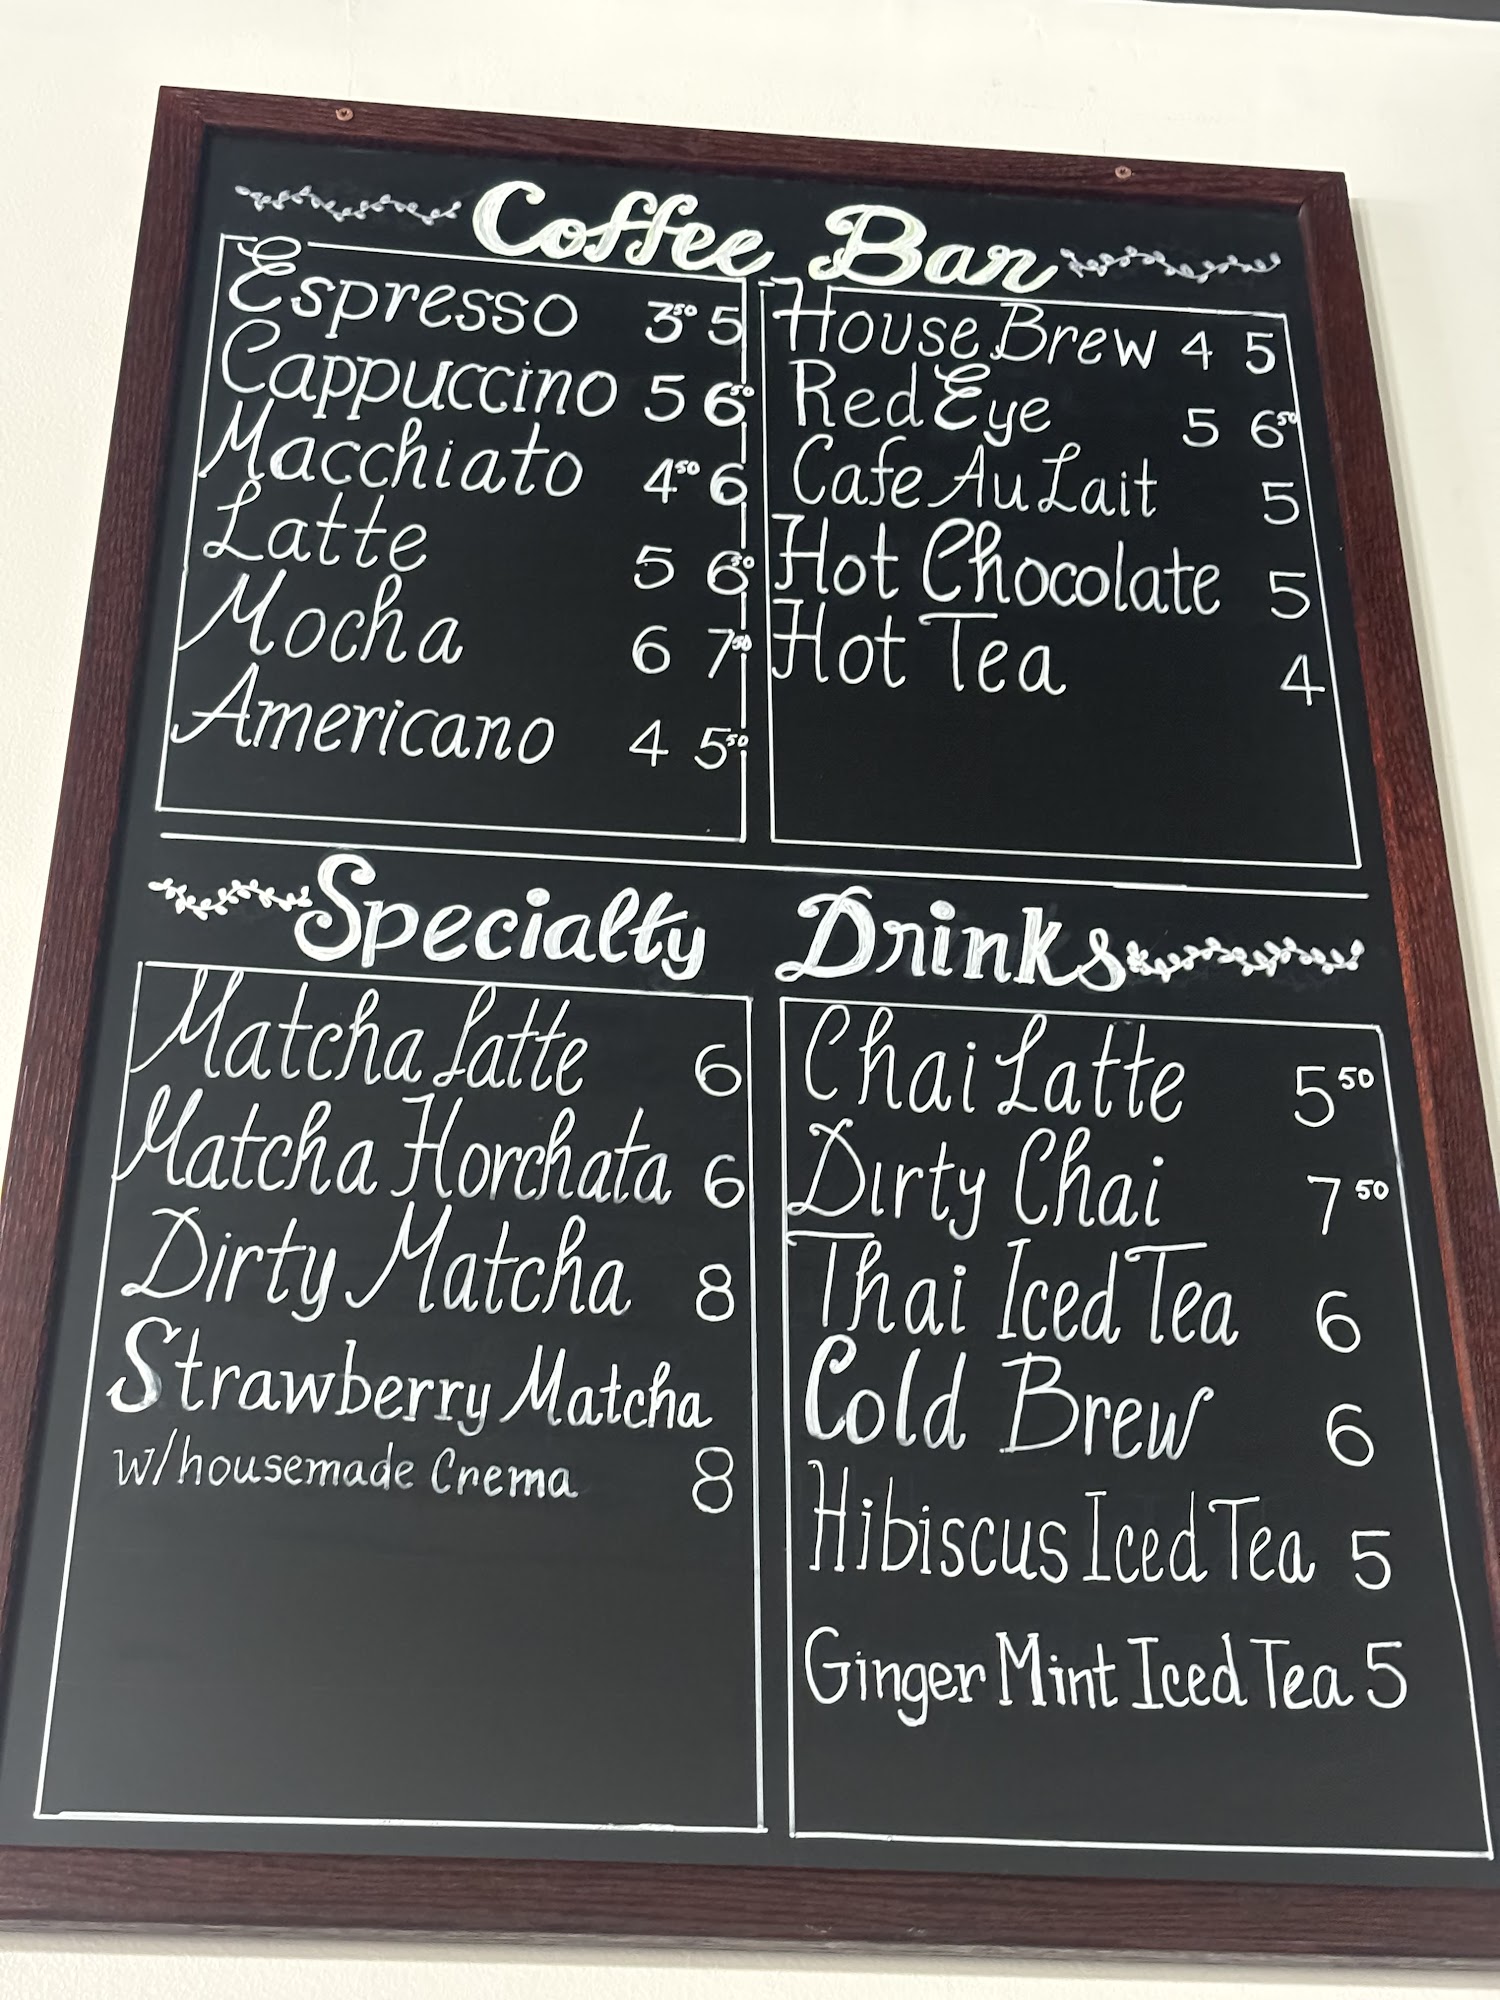 Coffee Bar
Espresso 3⁵⁰ 5
Cappuccino 5 6⁵⁰
Macchiato 4⁵⁰ 6
Latte 5 6⁵⁰
Mocha 6 7⁵⁰
Americano 4 5⁵⁰
House Brew 4 5
Red Eye 5 6⁵⁰
Cafe Au Lait 5
Hot Chocolate 5
Hot Tea 4
Specialty Drinks
Matcha Latte 6
Matcha Horchata 6
Dirty Matcha 8
Strawberry Matcha
w/housemade Crema 8
Chai Latte 5⁵⁰
Dirty Chai 7⁵⁰
Thai Iced Tea 6
Cold Brew 6
Hibiscus Iced Tea 5
Ginger Mint Iced Tea 5